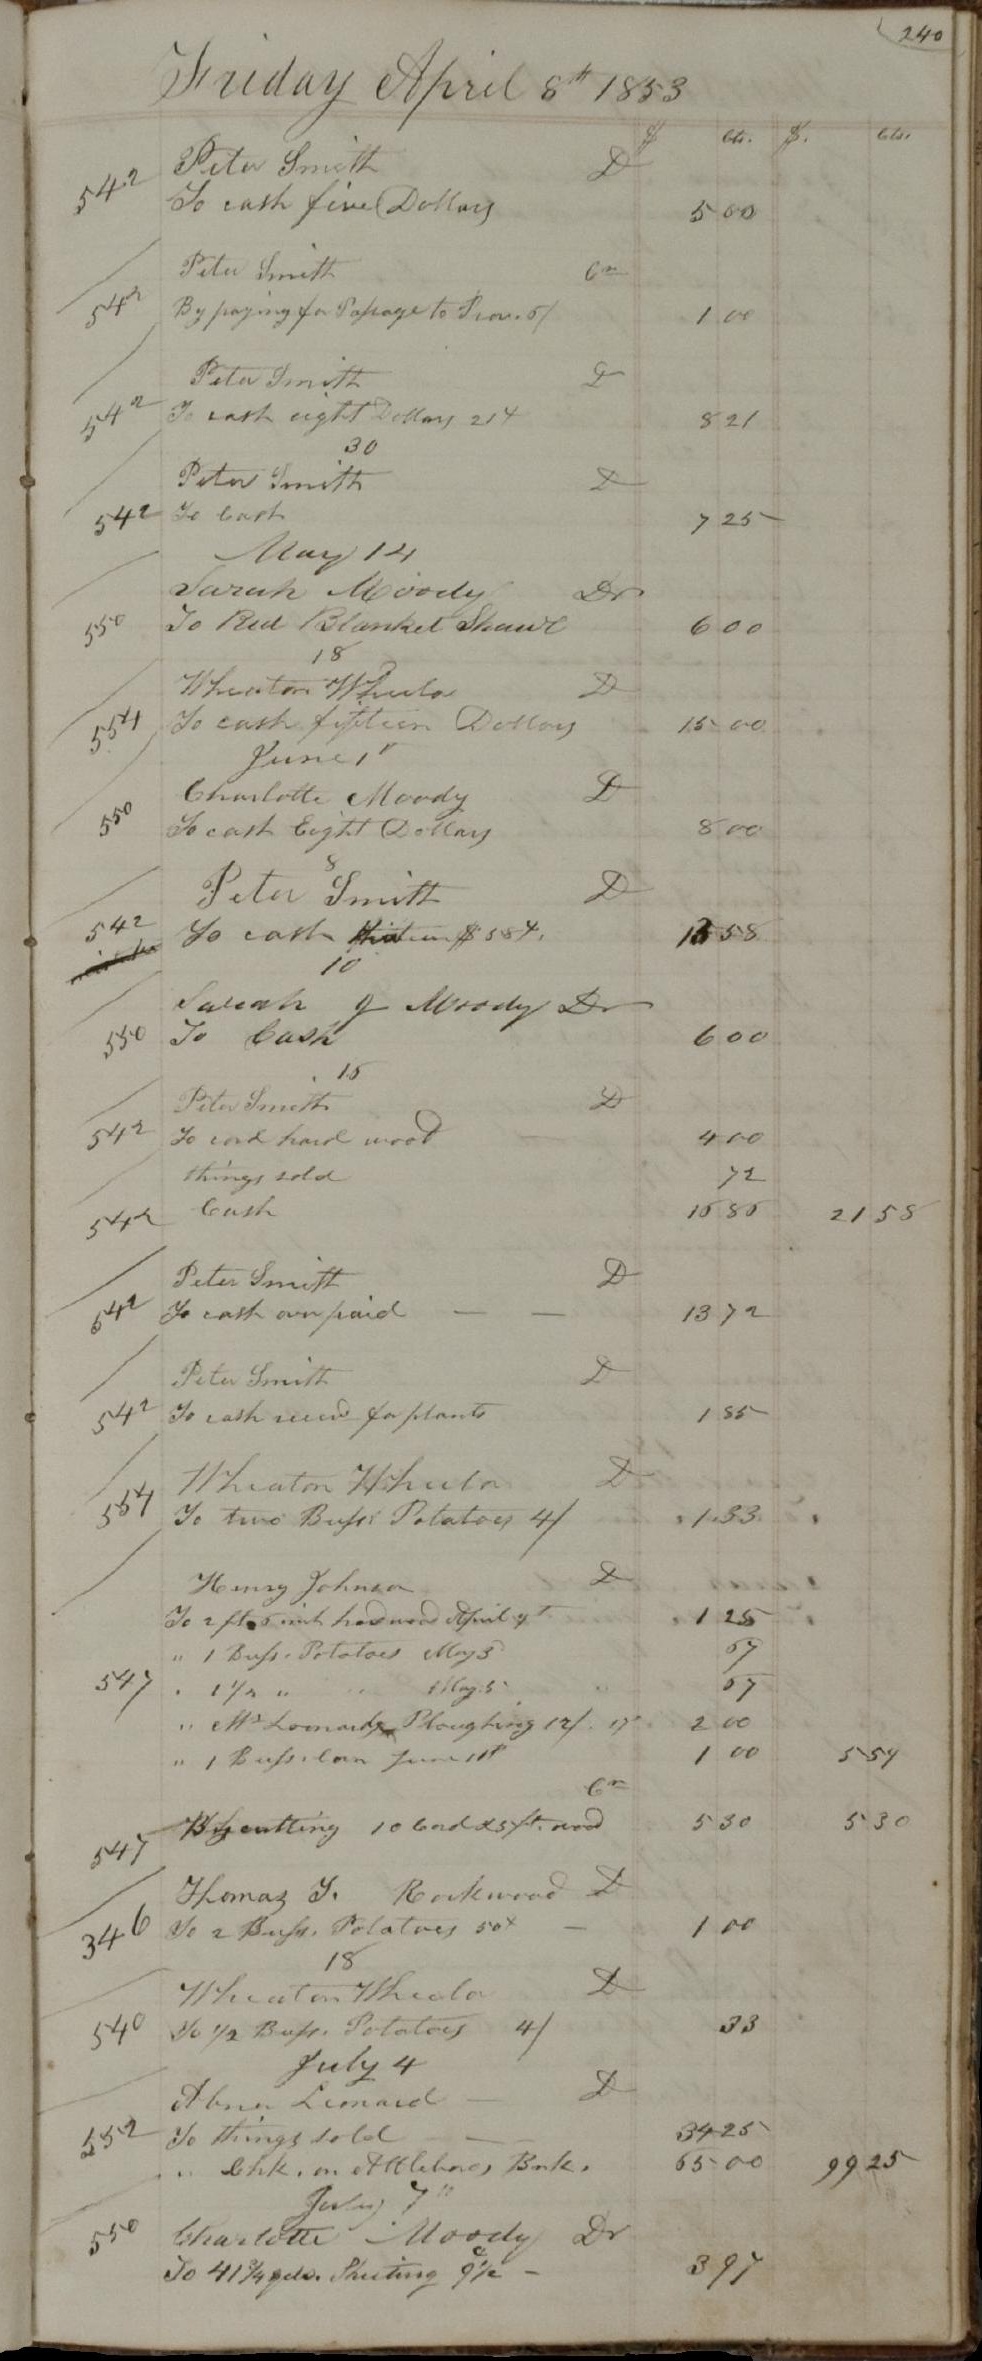 240
Friday April 8th 1853
$ cts. $. cts.
Peter Smith D
542 To cash five Dollars 5 00
Peter Smith Cr
542 By paying for Passage to Prov. 6/ 1 00
Peter Smith D
542 To cash eight Dollars 21¢ 8 21
30
Peter Smith D
542 To Cash 7 25
May 14
Sarah Moody Dr
550 To Red Blanket Shawl 6 00
18
Wheaton Wheeler D
554 To cash fifteen Dollars 15 00
June 1st
Charlotte Moody D
550 To cash Eight Dollars 8 00
8
Peter Smith D
542 To cash $ 58¢. 13 58
10
Sarah J Moody Dr
550 To Cash 6 00
15
Peter Smith D
542 To cord hard wood 4 00
things sold 72
542 Cash 16 86 21 58
Peter Smith D
542 To cash over paid 13 72
Peter Smith D
542 To cash recevd for plants 1 85
Wheaton Wheeler D
554 To two Bush Potatoes 4/ 1.33
Henry Johnson D
To 2 ft 6 inch hard wood April 9th 1 25
" 1 Bush. Potatoes May 3 67
547 " 1 1/2 " " May 5 67
" Mr Leonards Ploughing 12/. 17 2 00
" 1 Bush. Corn June 11th 1 00 5 59
Cr
547 By cutting 10 Cord & 5 ft. wood 5 30 5 30
Thomas T. Rockwood D
346 To 2 Bush. Potatoes 50¢ 1 00
18
Wheaton Wheeler D
540 To 1/2 Bush. Potatoes 4/ 33
July 4
Abner Leonard D
552 To things sold 34 25
" Chk. on Attleboro Bank. 65 00 99 25
July 7th
550 Charlotte Moody Dr
To 41 3/4 yds. Sheeting 9 1/2 c 3 97